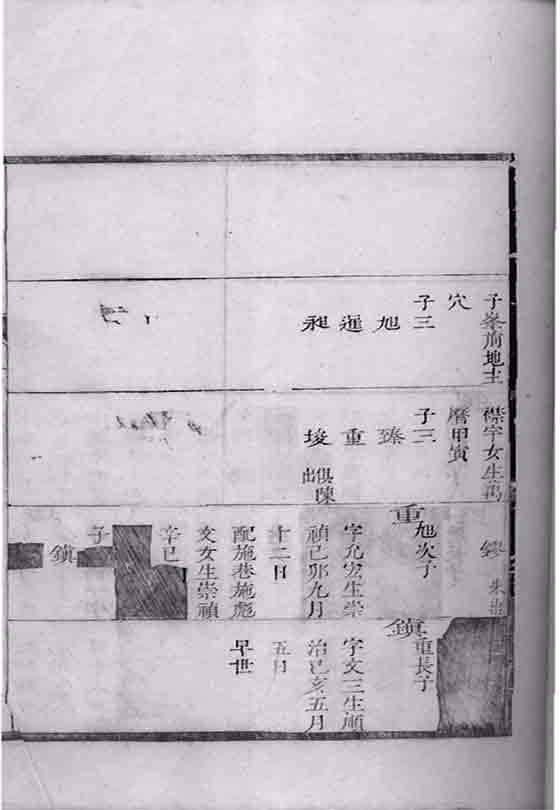 子峯前地主
穴
子三
旭
暹
昶
襟宇女生萬
曆甲寅
子三
臻
重
埈
俱陳
出
重
旭次子
字允宏生崇
禎己卯九月
十二日
配施巷施彪
文女生崇禎
辛巳
子
鎮
鎮
重長子
字文三生順
治己亥五月
五日
早世